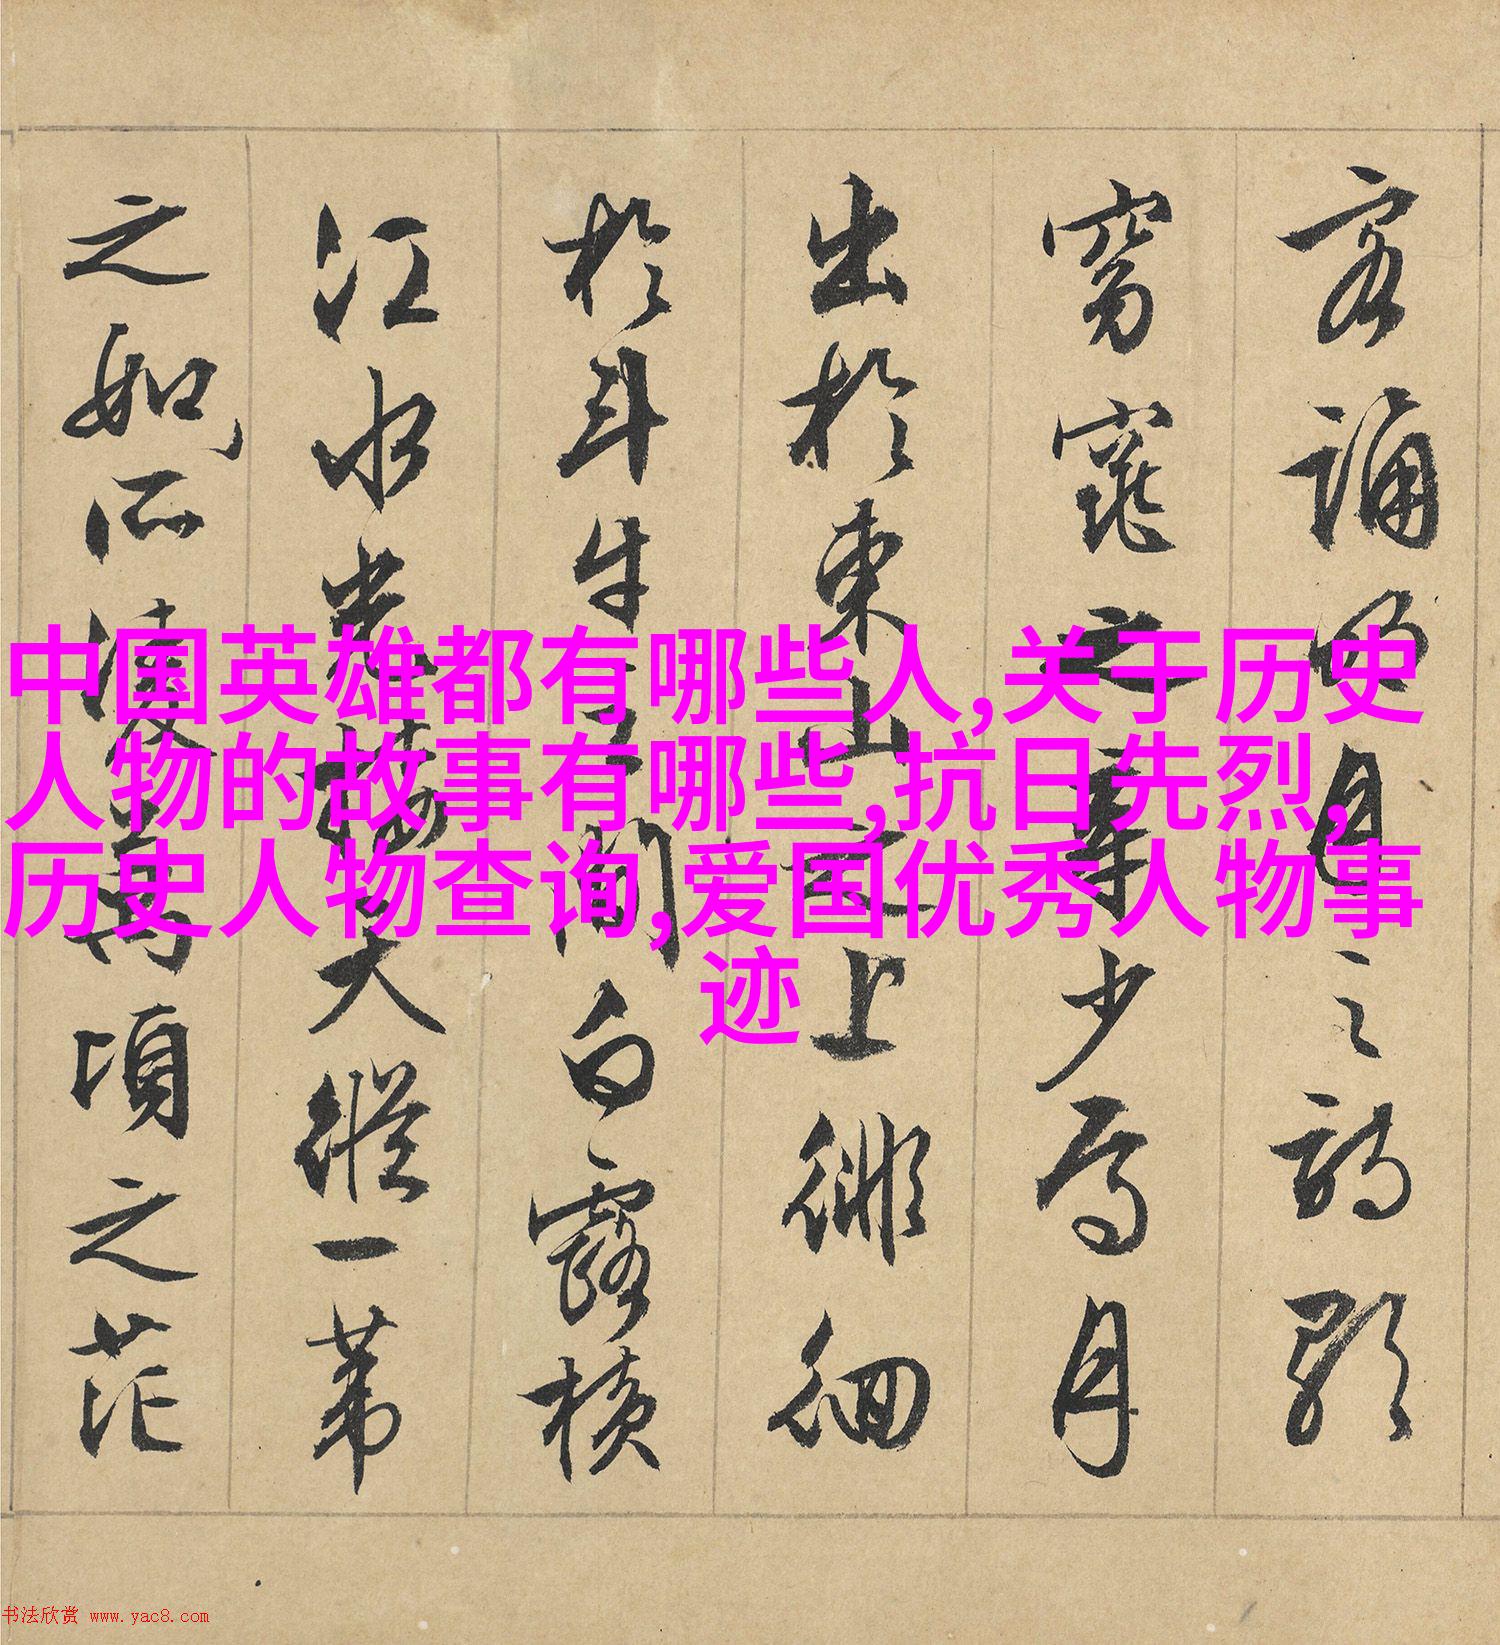 客誦明月之詩歌
窈窕之章少焉月
出於東山之上徘徊
於斗牛之間白露橫
江水光接天縱一葦
之如所凌萬頃之茫
中国英雄都有哪些人,关于历史
人物的故事有哪些,抗日先烈,
历史人物查询,爱国优秀人物事
迹
书法欣赏 www.yac8.com